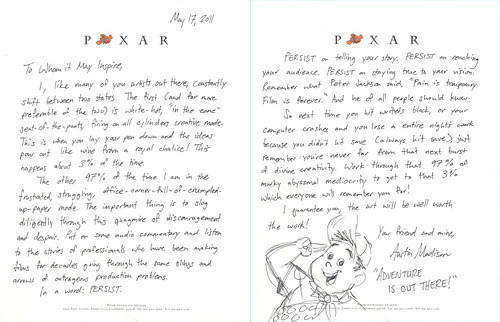 May 17, 2011
PIXAR
To Whom it May Inspire,
I, like many of you artists out there, constantly
shift between two states. The first (and far more
preferable of the two) is white-hot, "in the zone"
seat-of-the-pants, firing on all cylinders creative mode.
This is when you lay your pen down and the ideas
pour out like wine from a royal chalice! This
happens about 3% of the time.
The other 97% of the time I am in the
frustrated, struggling, office-corner-full-of-crumpled-
up-paper mode. The important thing is to slog
diligently through this quagmire of discouragement
and despair. Put on some audio commentary and listen
to the stories of professionals who have been making
films for decades going through the same slings and
arrows of outrageous production problems.
In a word: PERSIST.
PIXAR
PERSIST on telling your story. PERSIST on reaching
your audience. PERSIST on staying true to your vision.
Remember what Peter Jackson said, "Pain is temporary.
Film is forever." And he of all people should know.
So next time you hit writer's block, or your
computer crashes and you lose an entire night's work
because you didn't hit save (always hit save), just
remember: you're never far from that next burst
of divine creativity. Work through that 97% of
murky abysmal mediocrity to get to that 3%
which everyone will remember you for!
I guarantee you, the art will be well worth
the work!
Your friend and mine,
Austin Madison
"ADVENTURE
IS OUT THERE!"